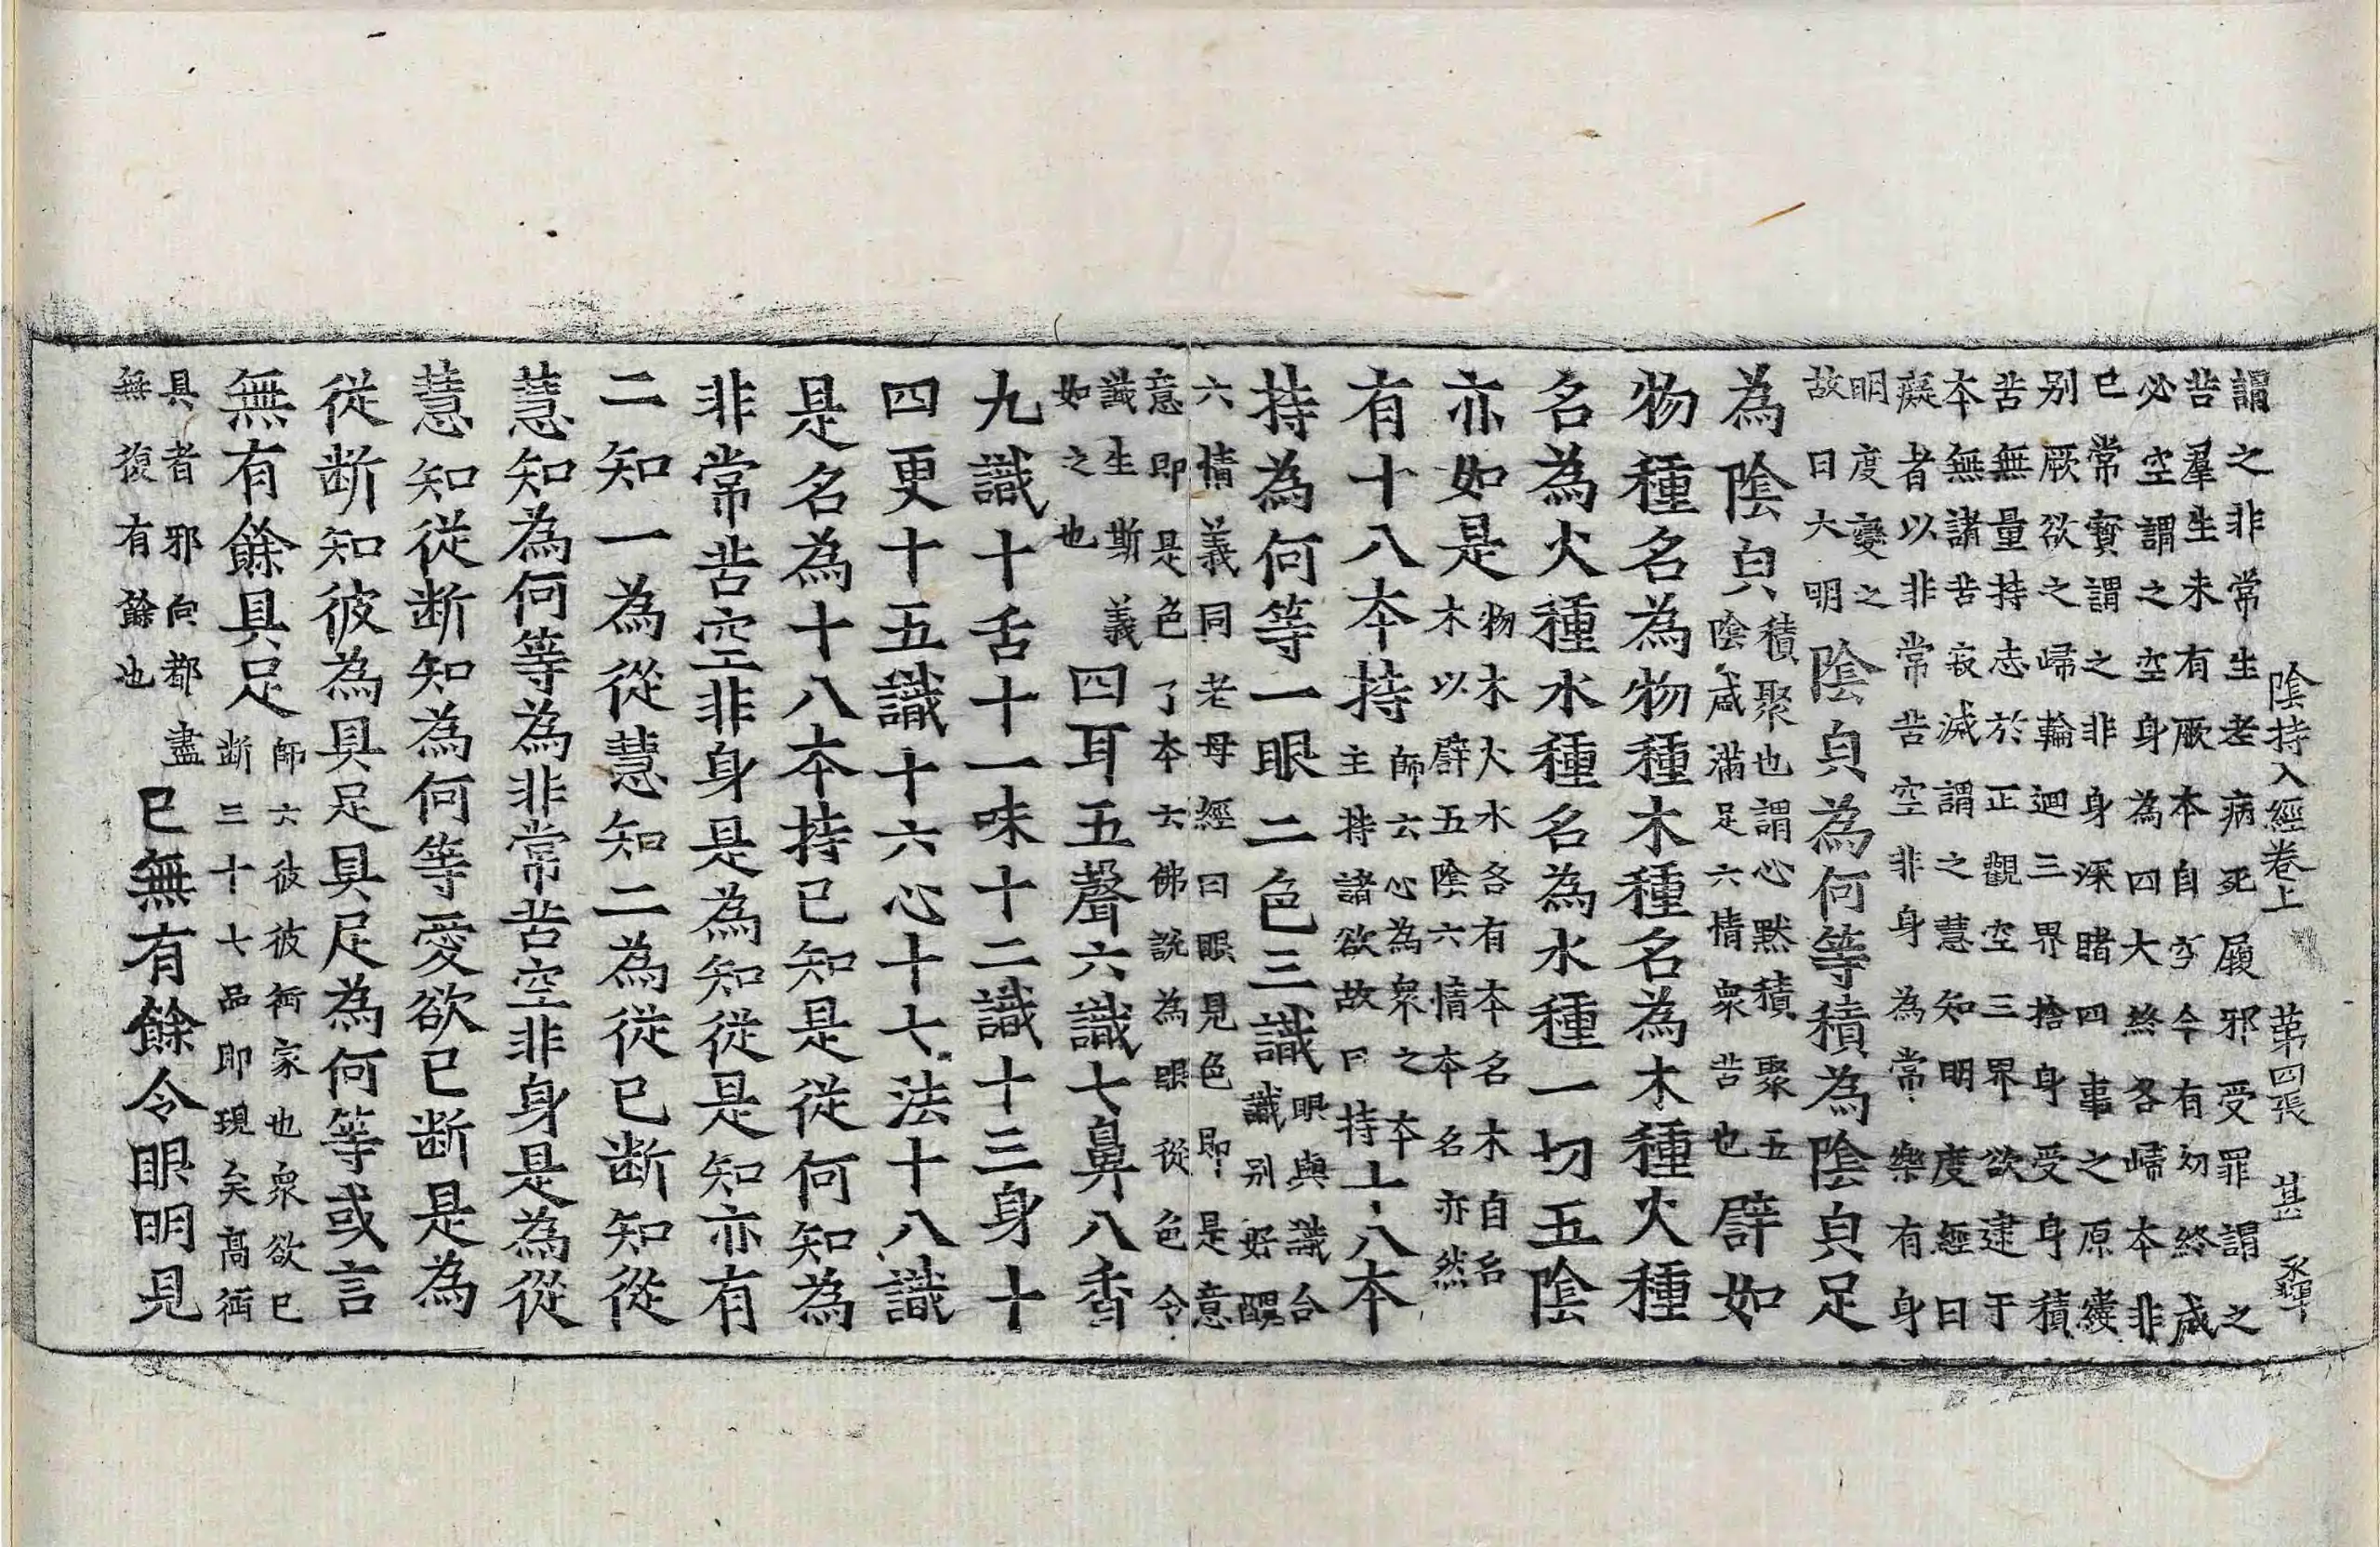 陰持入經卷上　第四張　甚
謂之非常生老病死屐邪受罪謂之
苦羣生未有厥本自今有幼終咸
必空謂之空身為四大終各歸本非
已常實謂之非身深睹四事之原癡
别厥欲之歸輪迴三界捨身受身積
苦無量持志於正觀空三界欲逮于
本無諸苦寂滅謂之慧知明度經曰
癡者以非常苦空非身為常樂有身
明度變之故曰大明陰貟為何等積為陰貟足
為陰貟積聚也謂心黙積聚五陰咸滿足六情衆苦也譬如
物種名為物種木種名為木種火種
名為火種水種名為水種一切五陰
亦如是物木火水各有本名木自名木以譬五陰六情本名亦然
有十八本持師云心為衆之本主持諸欲故曰持十八本
持為何等一眼二色三識眼與識合識别好醜
六情義同老母經曰眼見色即是意
意即是色了本云佛說為眼從色令
識生斯義如之也四耳五聲六識七鼻八香
九識十舌十一味十二識十三身十
四更十五識十六心十七法十八識
是名為十八本持已知是從何知為
非常苦空非身是為知從是知亦有
二知一為從慧知二為從已断知從
慧知為何等為非常苦空非身是為從
慧知從断知為何等愛欲已断是為
從断知彼為具足具足為何等或言
無有餘具足師云彼彼衕家也衆欲已断三十七品即現矣髙衕
具者邪向都盡無復有餘也已無有餘令眼明見